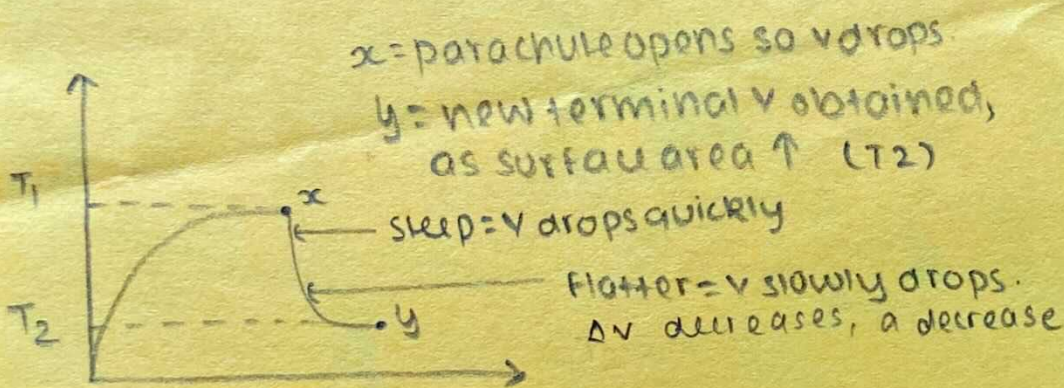 x = parachute opens so v drops.
y = new terminal v obtained,
as surface area ↑ (T2)
T1
x
steep = v drops quickly
flatter = v slowly drops.
T2
y
Δv decreases, a decrease